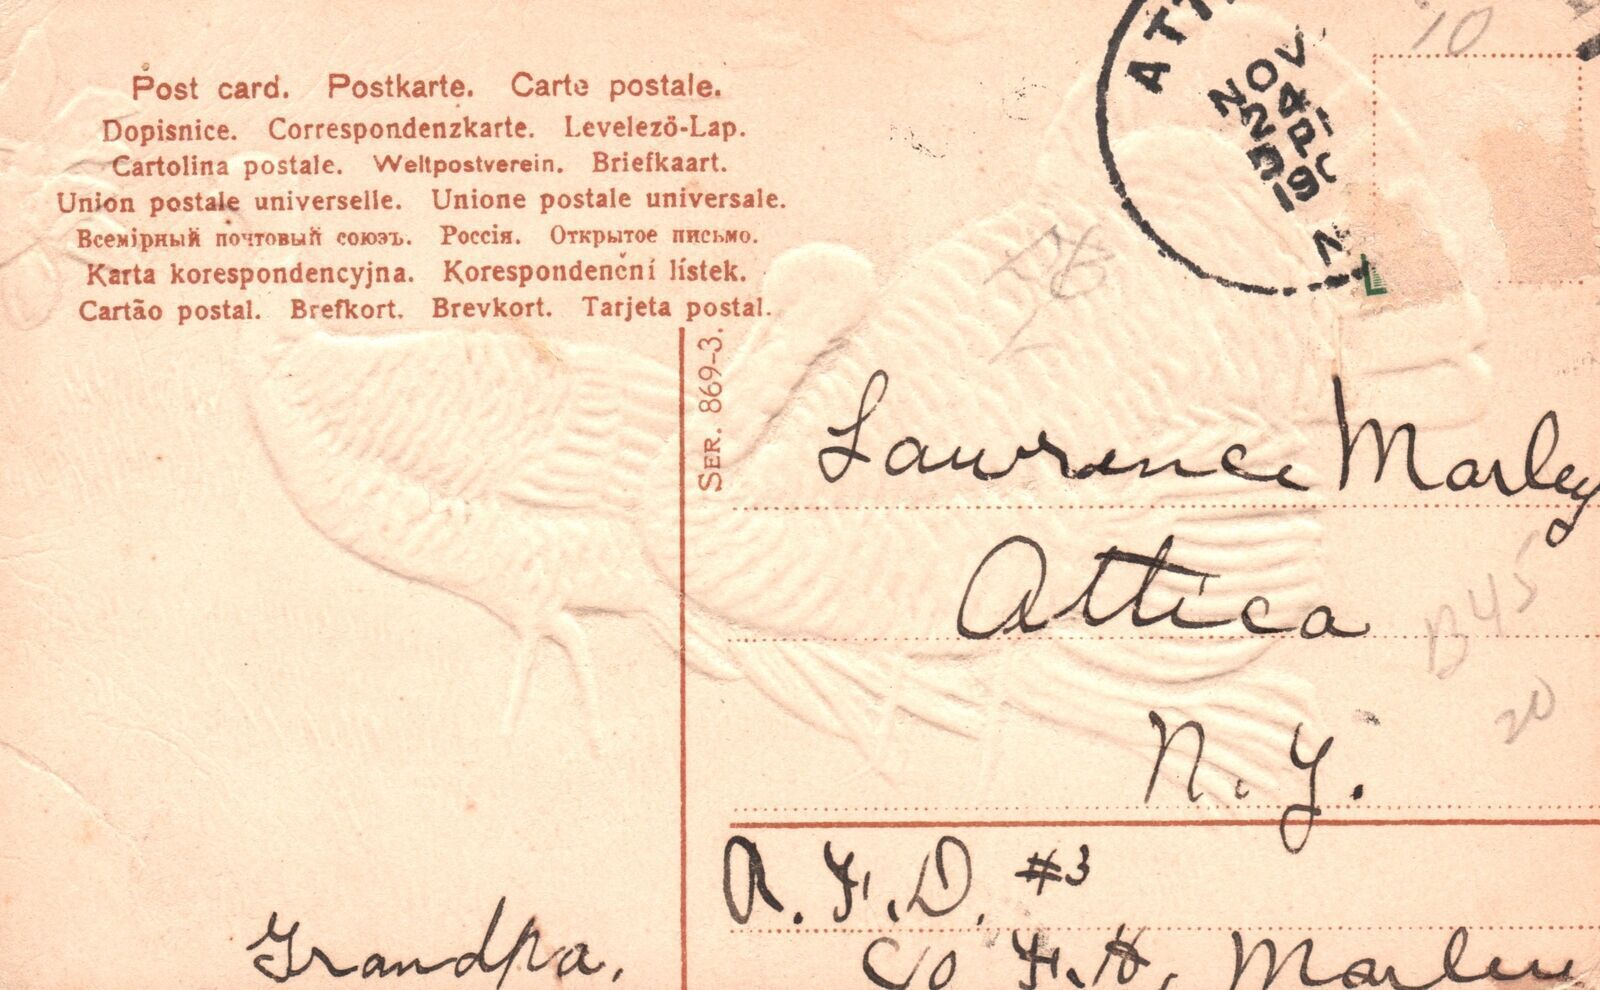 Post card. Postkarte. Carte postale.
Dopisnice. Correspondenzkarte. Levelező-Lap.
Cartolina postale. Weltpostverein. Briefkaart.
Union postale universelle. Unione postale universale.
Всемірный почтовый союзъ. Россія. Открытое письмо.
Karta korespondencyjna. Korespondenční lístek.
Cartão postal. Brefkort. Brevkort. Tarjeta postal.
SER. 869-3.
ATT
NOV
24
5 P
190
N
10
Lawrence Marley
Attica
N. Y.
B45
20
R. F. D. #3
c/o F. H. Marley
Grandpa.